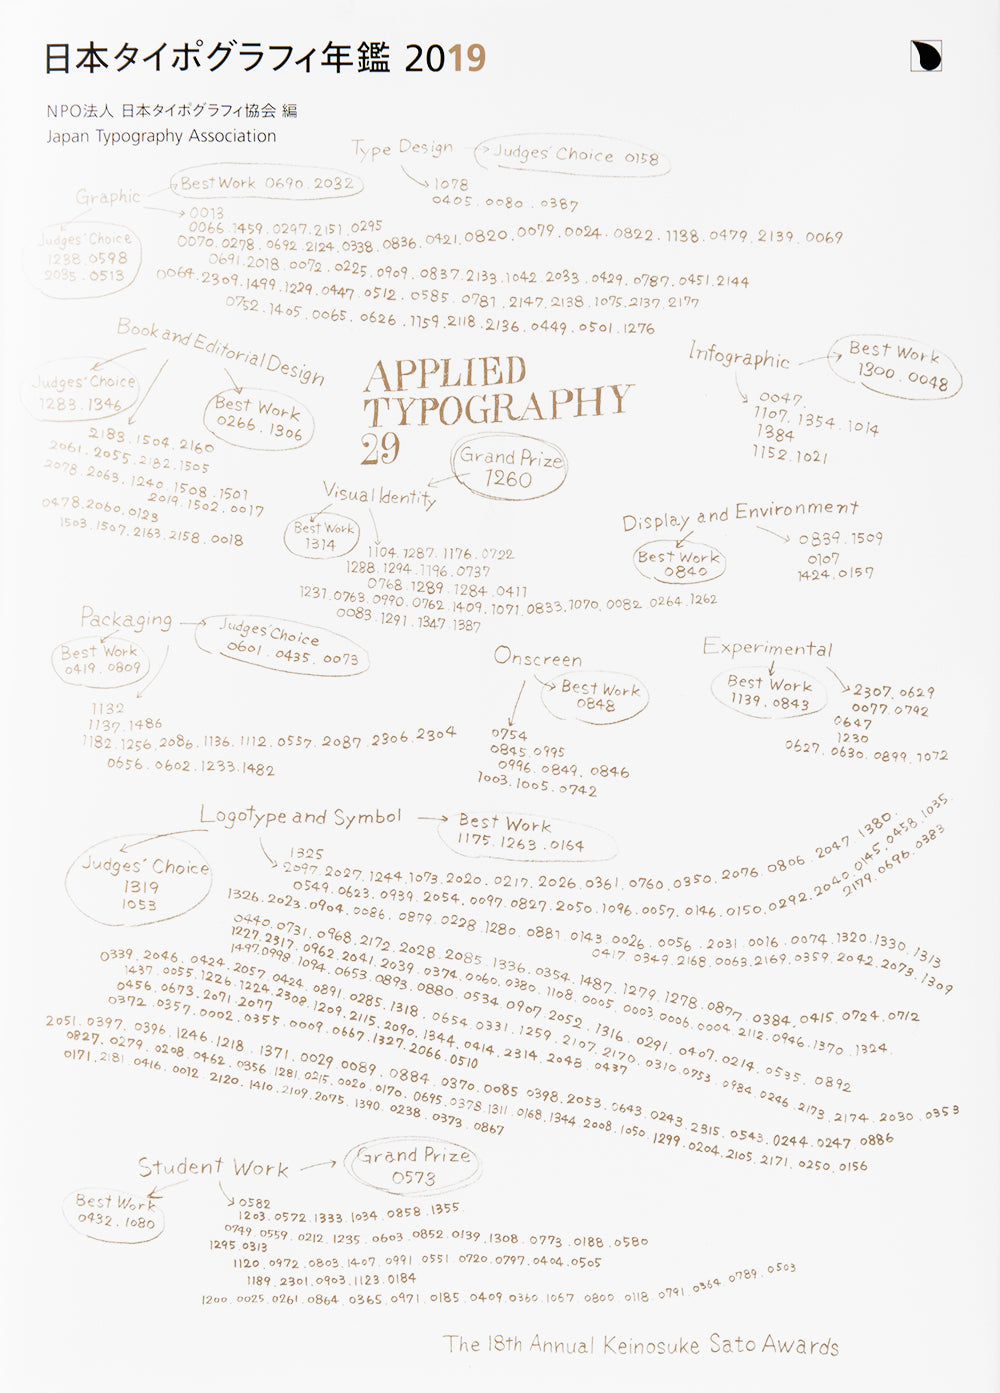 日本タイポグラフィ年鑑 2019
NPO法人 日本タイポグラフィ協会 編
Japan Typography Association
Type Design
Judges' Choice 0158
1078
0405.0080.0387
Graphic
Best Work 0690.2032
Judges' Choice
1238.0598
2035.0513
0013
0066.1459.0297.2151.0295
0070.0278.0692.2124.0338.0836.0421.0820.0079.0024.0822.1138.0479.2139.0069
0691.2018.0072.0225.0909.0837.2133.1042.2033.0429.0787.0451.2144
0064.2309.1499.1229.0447.0512.0585.0781.2147.2138.1075.2137.2177
0752.1405.0065.0626.1159.2118.2136.0449.0501.1276
Book and Editorial Design
Judges' Choice
1283.1346
Best Work
0266.1306
2183.1504.2160
2061.2055.2182.1505
2078.2063.1240.1508.1501
2019.1502.0017
0478.2060.0123
1503.1507.2163.2158.0018
APPLIED
TYPOGRAPHY
29
Infographic
Best Work
1300.0048
0047.
1107.1354.1014
1384
1152.1021
Grand Prize
1260
Visual Identity
Best Work
1314
1104.1287.1176.0722
1288.1294.1196.0737
0768.1289.1284.0411
1231.0763.0990.0762.1409.1071.0833.1070.0082.0264.1262
0083.1291.1347.1387
Display and Environment
Best Work
0840
0839.1509
0107
1424.0157
Packaging
Judges' Choice
0601.0435.0073
Best Work
0419.0809
1132
1137.1486
1182.1256.2086.1136.1112.0557.2087.2306.2304
0656.0602.1233.1482
Onscreen
Best Work
0848
0754
0845.0995
0996.0849.0846
1003.1005.0742
Experimental
Best Work
1139.0843
2307.0629
0077.0792
0647
1230
0627.0630.0899.1072
Logotype and Symbol
Best Work
1175.1263.0164
Judges' Choice
1319
1053
1325
2097.2027.1244.1073.2020.0217.2026.0361.0760.0350.2076.0806.2047.1380.
0549.0623.0939.2054.0097.0827.2050.1096.0057.0146.0150.0292.2040.0145.0458.1035.
2179.0696.0383
1326.2023.0904.0086.0879.0228.1280.0881.0143.0026.0056.2031.0016.0074.1320.1330.1313
0417.0349.2168.0063.2169.0359.2042.2073.1309
0440.0731.0968.2172.2028.2085.1336.0354.1487.1279.1278.0877.0384.0415.0724.0712
1227.2317.0962.2041.2039.0374.0060.0380.1108.0005.0003.0006.0004.2112.0946.1370.1324.
1497.0998.1094.0653.0893.0880.0534.0907.2052.1316.0291.0407.0214.0535.0892
0339.2046.0424.2057.0424.0891.0285.1318.0654.0331.1259.2107.2170.0310.0753.0984.0246.2173.2174.2030.0353
1437.0055.1226.1224.2308.1209.2115.2090.1344.0414.2314.2048.0437
0456.0673.2071.2077
0372.0357.0002.0355.0009.0667.1327.2066.0510
2051.0397.0396.1246.1218.1371.0029.0089.0884.0370.0085.0398.2053.0643.0243.2315.0543.0244.0247.0886
0827.0279.0208.0462.0356.1281.0215.0020.0170.0695.0378.1311.0168.1344.2008.1050.1299.0204.2105.2171.0250.0156
0171.2181.0416.0012.2120.1410.2109.2075.1390.0238.0373.0867
Student Work
Grand Prize
0573
Best Work
0432.1080
0582
1203.0572.1333.1034.0858.1355
0749.0559.0212.1235.0603.0852.0139.1308.0773.0188.0580
1295.0313
1120.0972.0803.1407.0991.0551.0720.0797.0404.0505
1189.2301.0903.1123.0184
1200.0025.0261.0864.0365.0971.0185.0409.0360.1067.0800.0118.0791.0364.0789.0503
The 18th Annual Keinosuke Sato Awards